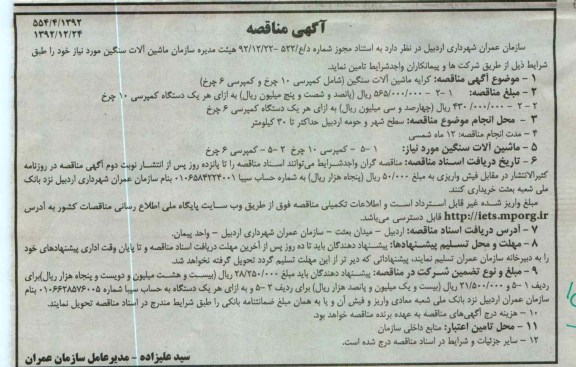 آگهی مناقصه
۵۵۴/۴/۱۳۹۲
۱۳۹۲/۱۲/۲۴
سازمان عمران شهرداری اردبیل در نظر دارد به استناد مجوز شماره د/ع/۵۲۲- ۹۲/۱۲/۲۲ هیئت مدیره سازمان ماشین آلات سنگین مورد نیاز خود را طبق
شرایط ذیل از طریق شرکت ها و پیمانکاران واجدشرایط تامین نماید.
۱ - موضوع آگهی مناقصه: کرایه ماشین آلات سنگین (شامل کمپرسی ۱۰ چرخ و کمپرسی ۶ چرخ)
۲ - مبلغ مناقصه: ۱ -۲ - ۵۶۵/۰۰۰/۰۰۰ ریال (پانصد و شصت و پنج میلیون ریال) به ازای هر یک دستگاه کمپرسی ۱۰ چرخ
۲ - ۲ - ۴۳۰/۰۰۰/۰۰۰ ریال (چهارصد و سی میلیون ریال) به ازای هر یک دستگاه کمپرسی ۶ چرخ
۳ - محل انجام موضوع مناقصه: سطح شهر و حومه اردبیل حداکثر تا ۳۰ کیلومتر
۴ - مدت انجام مناقصه: ۱۲ ماه شمسی
۵ - ماشین آلات سنگین مورد نیاز: ۱ -۵ - کمپرسی ۱۰ چرخ ۲ -۵ - کمپرسی ۶ چرخ
۶ - تاریخ دریافت اسناد مناقصه: مناقصه گران واجدشرایط می‌توانند اسناد مناقصه را تا پانزده روز پس از انتشار نوبت دوم آگهی مناقصه در روزنامه
کثیرالانتشار در مقابل فیش واریزی به مبلغ ۵۰/۰۰۰ ریال (پنجاه هزار ریال) به شماره حساب سیبا ۰۱۰۶۵۸۴۲۲۴۰۰۱ بنام سازمان عمران شهرداری اردبیل نزد بانک
ملی شعبه بعثت خریداری کنند.
مبلغ واریز شده غیر قابل استرداد است و اطلاعات تکمیلی مناقصه فوق از طریق وب سایت پایگاه ملی اطلاع رسانی مناقصات کشور به آدرس
http://iets.mporg.ir قابل دسترسی می‌باشد.
۷ - آدرس دریافت اسناد مناقصه: اردبیل - میدان بعثت - سازمان عمران شهرداری اردبیل - واحد پیمان.
۸ - مهلت و محل تسلیم پیشنهادها: پیشنهاد دهندگان باید تا ده روز پس از آخرین مهلت دریافت اسناد مناقصه و تا پایان وقت اداری پیشنهادهای خود
را به دبیرخانه سازمان عمران تسلیم نمایند، پیشنهاداتی که دیر تر از این مهلت تسلیم گردد تحویل گرفته نخواهد شد.
۹ - مبلغ و نوع تضمین شرکت در مناقصه: پیشنهاد دهندگان باید مبلغ ۲۸/۲۵۰/۰۰۰ ریال (بیست و هشت میلیون و دویست و پنجاه هزار ریال)برای
ردیف ۱ -۵ و ۲۱/۵۰۰/۰۰۰ ریال (بیست و یک میلیون و پانصد هزار ریال) برای ردیف ۲ -۵ و به ازای هر یک دستگاه به حساب سیبا شماره ۰۱۰۶۶۲۸۵۷۶۰۰۵ بنام
سازمان عمران اردبیل نزد بانک ملی شعبه معادی واریز و فیش آن و یا به همان مبلغ ضمانتنامه بانکی را طبق شرایط مندرج در اسناد مناقصه تحویل نمایند.
۱۰ - هزینه درج آگهی‌های مناقصه به عهده برنده مناقصه خواهد بود.
۱۱ - محل تامین اعتبار: منابع داخلی سازمان
۱۲ - سایر جزئیات و شرایط در اسناد مناقصه درج شده است.
سید علیزاده - مدیرعامل سازمان عمران